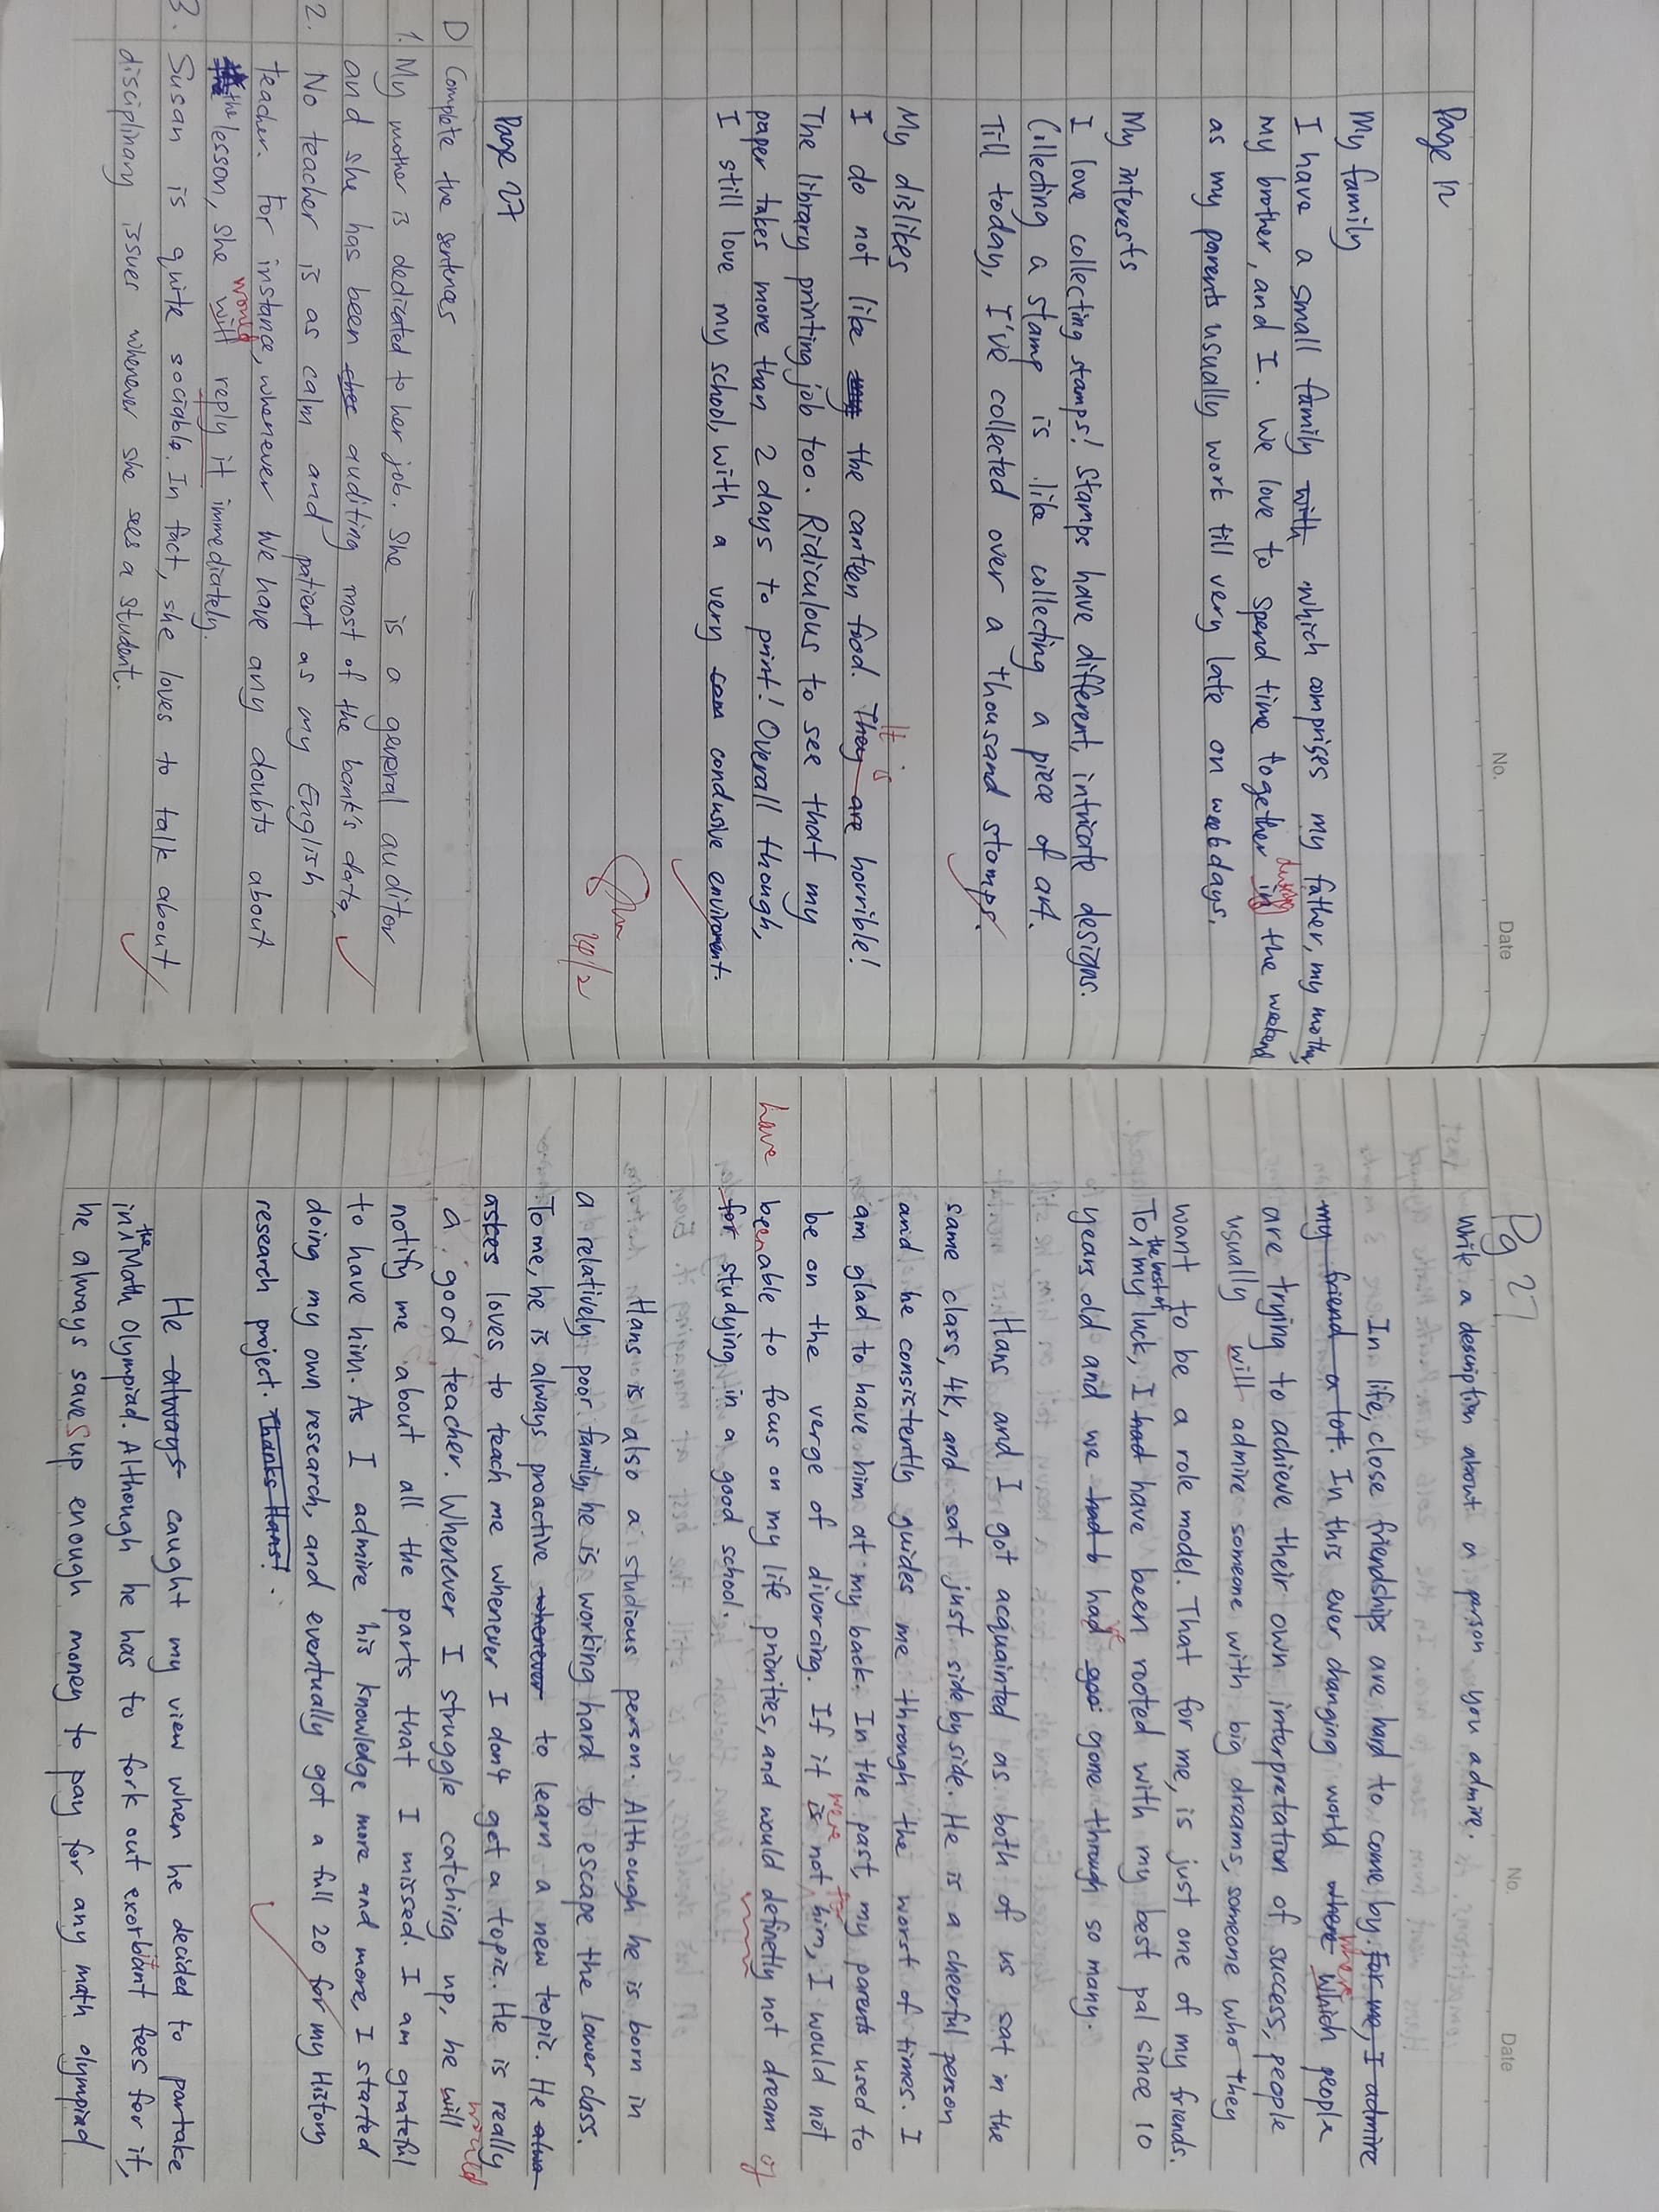 No.
Date
Page 12
My family
I have a small family with which comprises my father, my mother
my brother, and I. We love to spend time together in the weekend
during
as my parents usually work till very late on weekdays.
My interests
I love collecting stamps! Stamps have different, intricate designs.
Collecting a stamp is like collecting a piece of art.
Till today, I've collected over a thousand stamps.
My dislikes
I do not like the canteen food. They are horrible!
It is
The library printing job too. Ridiculous to see that my
paper takes more than 2 days to print! Overall though,
I still love my school, with a very condusive enviroment.
14/2
Page 27
D Complete the sentences
1. My mother is dedicated to her job. She is a general auditor
and she has been auditing most of the bank's data.
2. No teacher is as calm and patient as my English
teacher. For instance, whenever we have any doubts about
the lesson, she will reply it immediately.
would
3. Susan is quite sociable. In fact, she loves to talk about
disciplinary issues whenever she sees a student.
Pg 27
No.
Date
Write a description about a person you admire.
In life, close friendships are hard to come by. For me, I admire
my friend a lot. In this ever changing world where which people
where
are trying to achieve their own interpretation of success, people
usually will admire someone with big dreams, someone who they
want to be a role model. That for me, is just one of my friends.
To the best of my luck, I had have been rooted with my best pal since 10
years old and we had had goo gone through so many.
Hans and I got acquainted as both of us sat in the
same class, 4k, and sat just side by side. He is a cheerful person
and he consistently guides me through the worst of times. I
am glad to have him at my back. In the past, my parents used to
be on the verge of divorcing. If it is not him, I would not
were for
have been able to focus on my life priorities, and would definetly not dream of
for studying in a good school.
Hans is also a studious person. Although he is born in
a relatively poor family, he is working hard to escape the lower class.
To me, he is always proactive whenever to learn a new topic. He alwa
astes loves to teach me whenever I don't get a topic. He is really
a good teacher. Whenever I struggle catching up, he will
would
notify me about all the parts that I missed. I am grateful
to have him. As I admire his knowledge more and more, I started
doing my own research, and eventually got a full 20 for my History
research project. Thanks Hans!
He always caught my view when he decided to partake
in the Math Olympiad. Although he has to fork out exorbitant fees for it,
he always saves up enough money to pay for any math olympiad